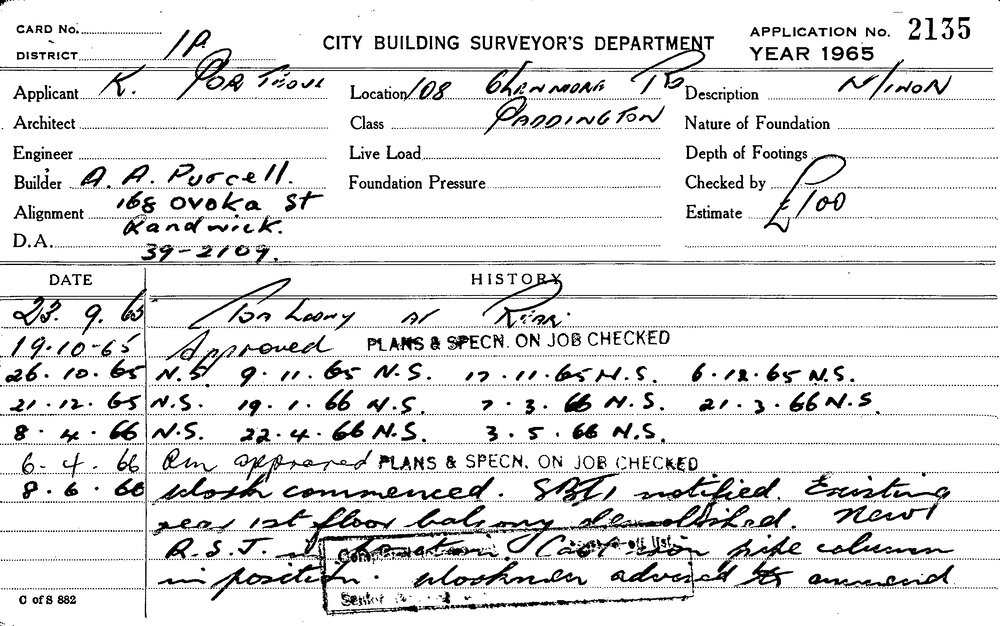 CARD No.
DISTRICT 1P
CITY BUILDING SURVEYOR'S DEPARTMENT
APPLICATION No. 2135
YEAR 1965
Applicant K.
Location 108 Glenmore Rd
Description
Architect
Class Paddington
Nature of Foundation
Engineer
Live Load
Depth of Footings
Builder A. A. Purcell.
Foundation Pressure
Checked by
Alignment 168 Ovoka St
Estimate £100
D.A. Randwick.
39-2109.
DATE HISTORY
23. 9. 65 Balcony at Rear.
19.10-65 Approved PLANS & SPECN. ON JOB CHECKED
26. 10. 65 N.S. 9. 11. 65 N.S. 17. 11. 65 N.S. 6. 12. 65 N.S.
21. 12. 65 N.S. 19. 1. 66 N.S. 7. 3. 66 N.S. 21. 3. 66 N.S.
8. 4. 66 N.S. 22. 4. 66 N.S. 3. 5. 66 N.S.
6. 4. 66 approved PLANS & SPECN. ON JOB CHECKED
8. 6. 66 Work commenced. notified. Existing
rear 1st floor balcony demolished. New
R.S.J. in Cast iron pipe column
in position. Workmen advised to ammend
Senior
C of S 882